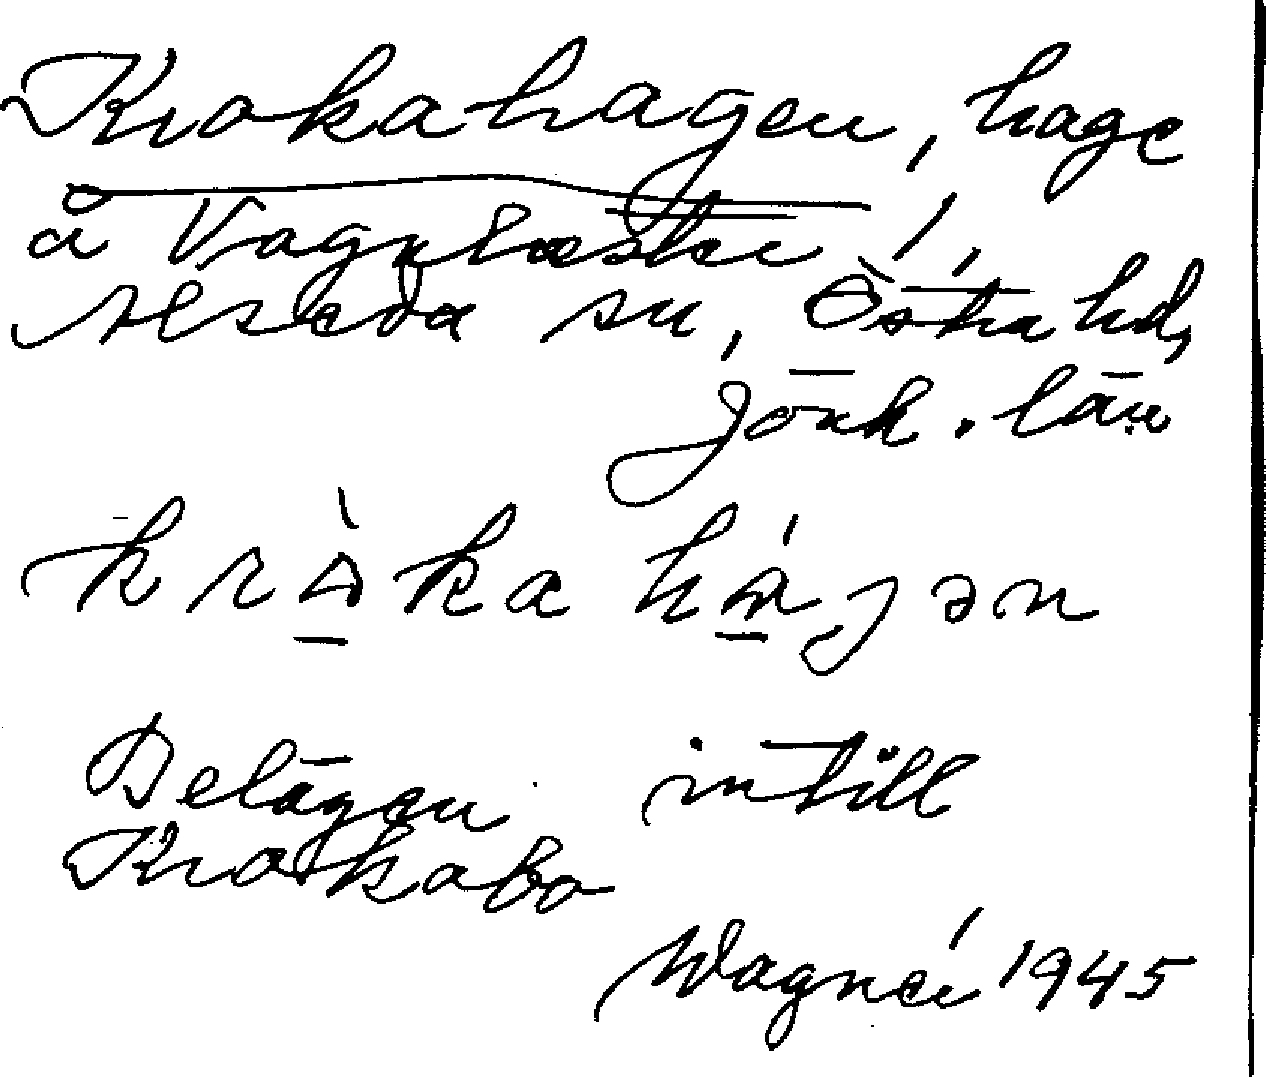 Krokahagen, hage
å Vagnhester,
Alseda sn, Östra hd,
Jönk. län
krò̱ka há̱jən
Belägen intill
Krokabo
Wagnér 1945